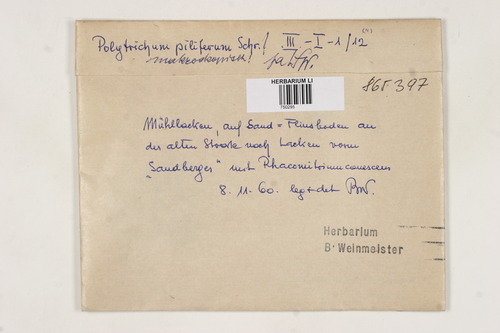 Polytrichum piliferum Schr.! III - I - 1/12
makroskopisch!
HERBARIUM LI
750295
865397
Mühllacken, auf Sand = Flinsboden an
der alten Straße nach Lacken vorm
"Sandberges" mit Rhacomitrium canescens
8. 11. 60. leg + det BW.
Herbarium
B. Weinmeister